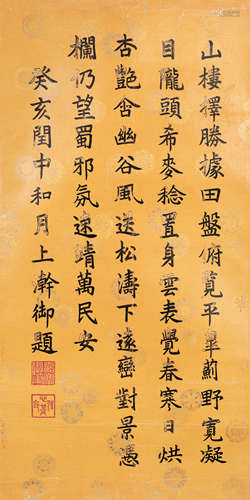 山樓擇勝據田盤俯覽平皋薊野寬凝
目隴頭希麥稔置身雲表覺春寒日烘
杏艷含幽谷風送松濤下遠巒對景憑
欄仍望蜀邪氛速靖萬民安
癸亥閏中和月上澣御題